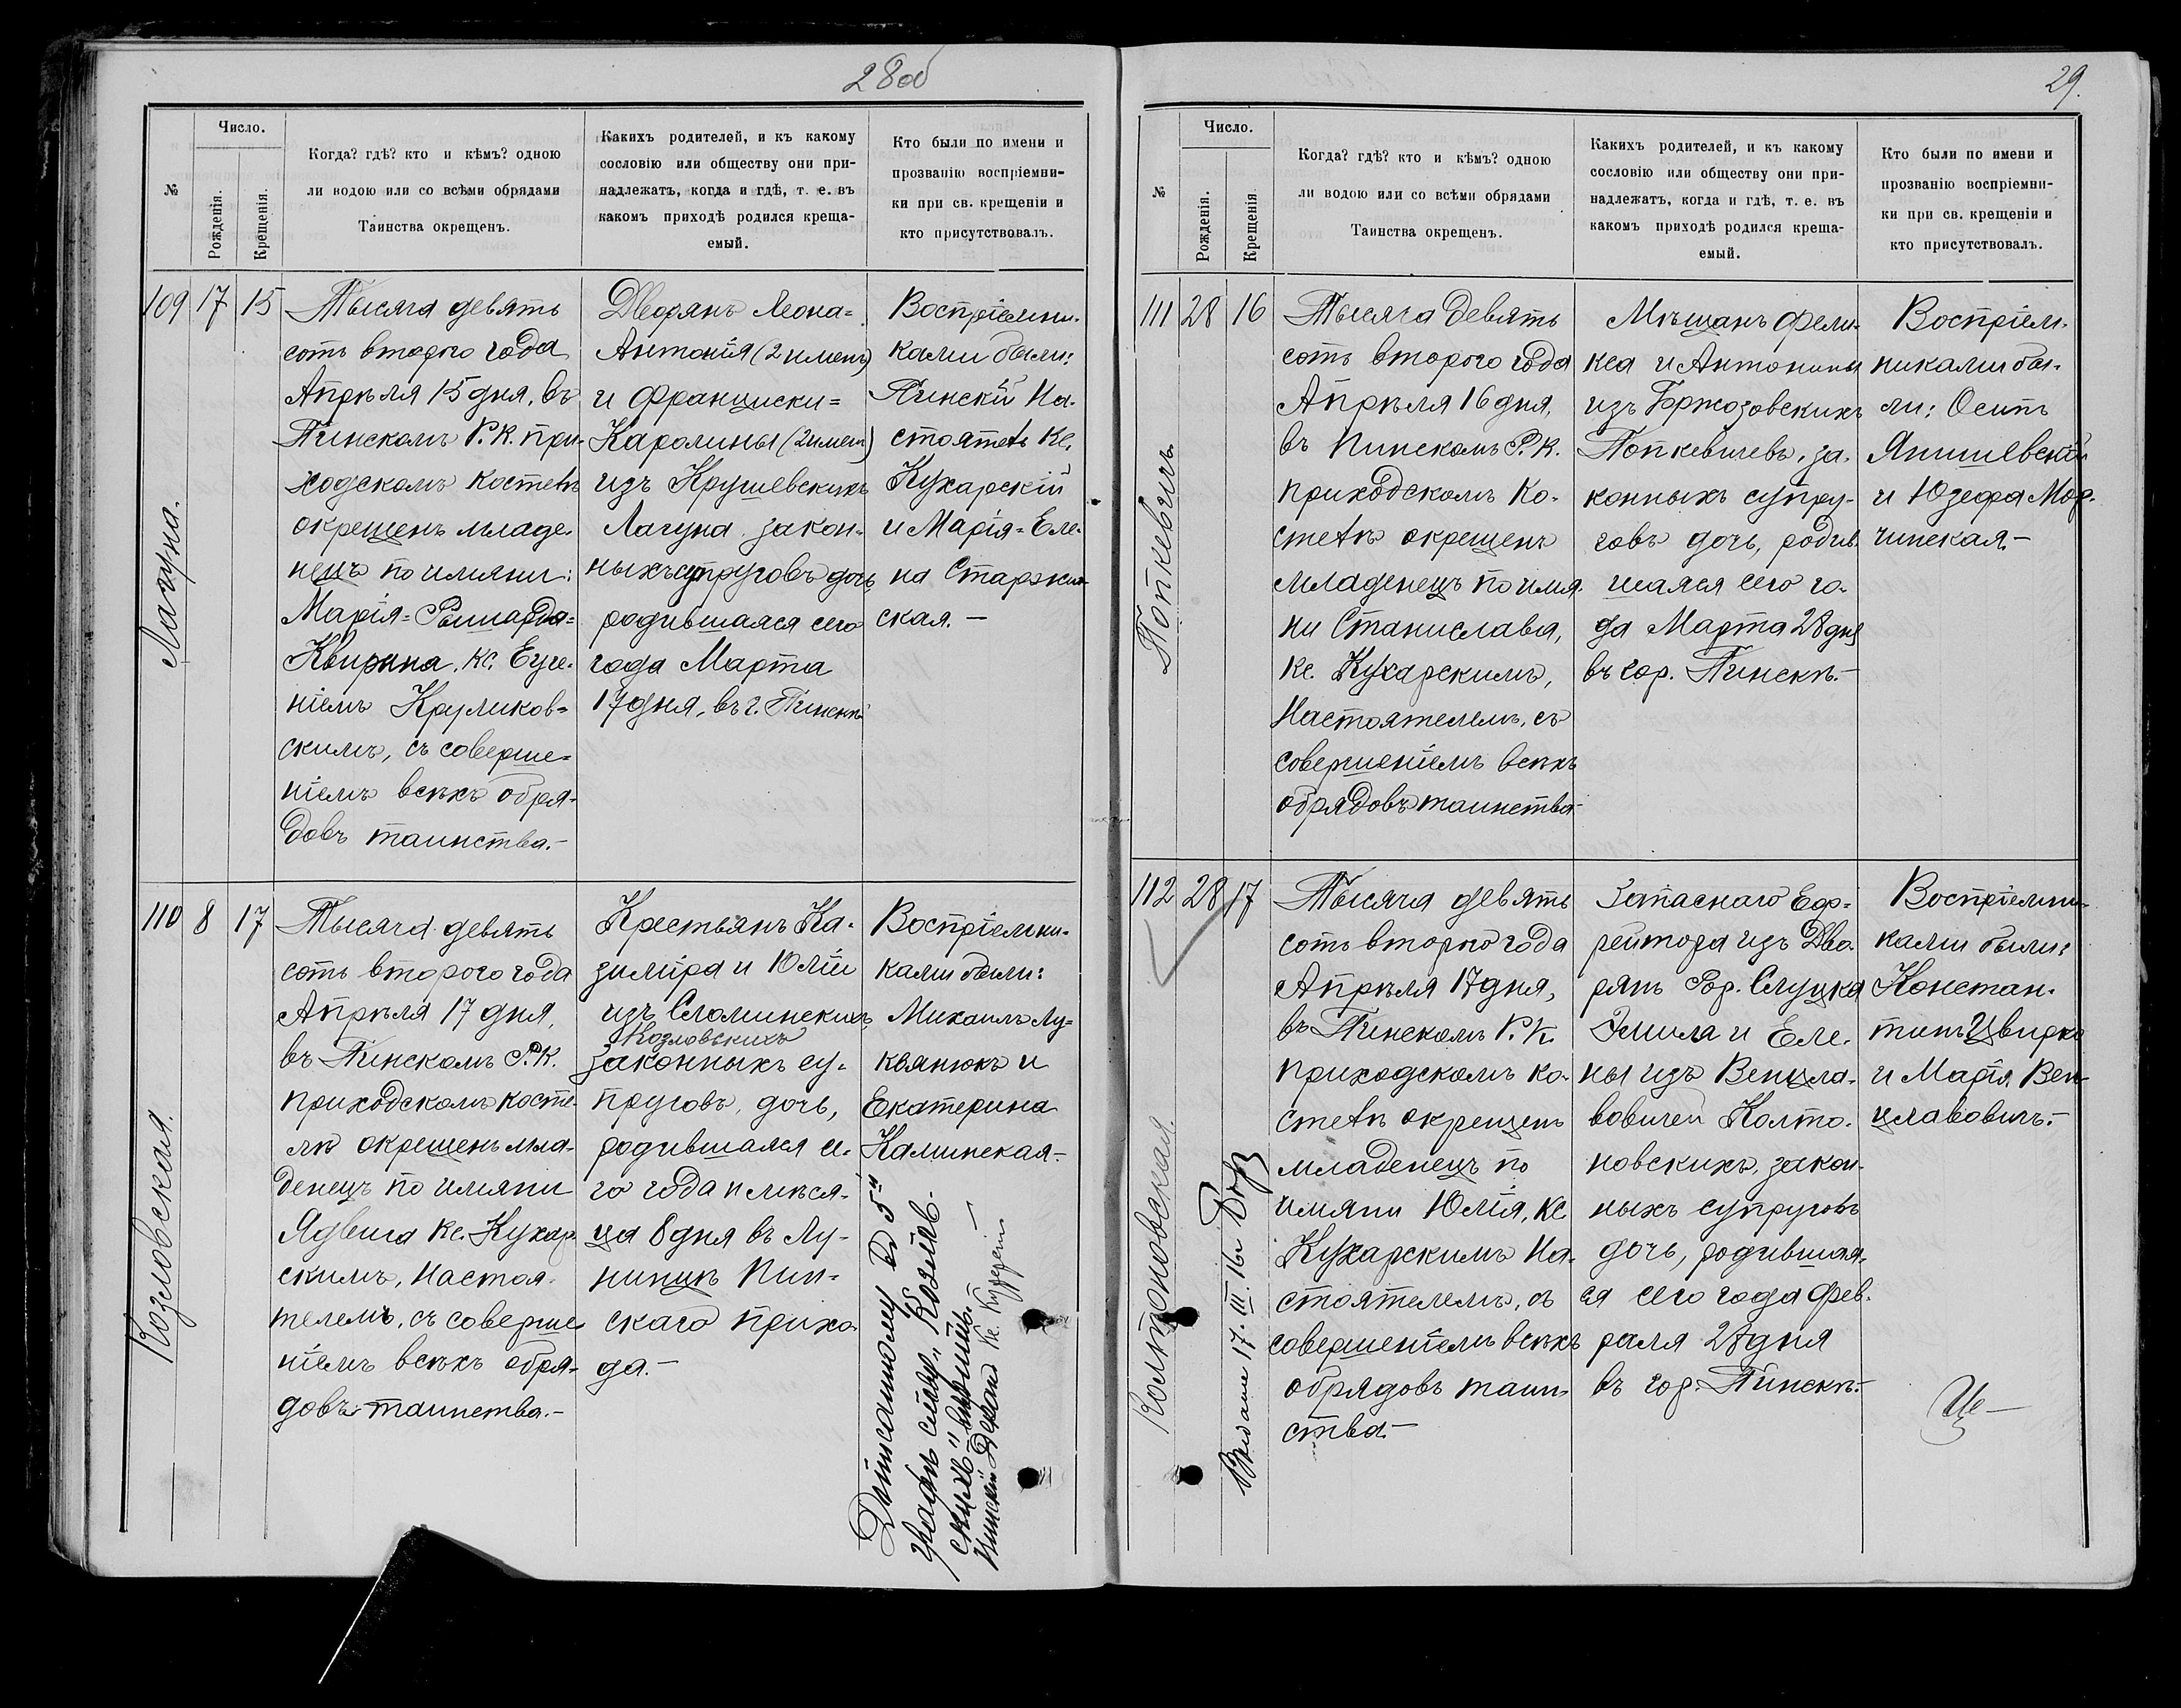 28об
№
Число.
Рожденія.
Крещенія.
Когда? гдѣ? кто и кѣмъ? одною
ли водою или со всѣми обрядами
Таинства окрещенъ.
Какихъ родителей, и къ какому
сословію или обществу они при-
надлежатъ, когда и гдѣ, т. е. въ
какомъ приходѣ родился креща-
емый.
Кто были по имени и
прозванію воспріемни-
ки при св. крещеніи и
кто присутствовалъ.
Лагуна.
109 17 15
Тысяча девять
сотъ второго года
Апрѣля 15 дня, въ
Пинскомъ Р. К. при-
ходскомъ костелѣ
окрещенъ младе-
нецъ по имяни:
Марія=Рышарда=
Квирина, кс. Евге-
ніемъ Круликов=
скимъ, съ соверше=
ніемъ всѣхъ обря-
довъ таинства.-
Дворянъ Леона=
Антонія (2 именъ)
и Франциски=
Каролины (2 имен)
изъ Крушевскихъ
Лагуна закон-
ныхъ супруговъ дочь,
родившаяся сего
года Марта
17 дня, въ г. Пинскѣ
Воспріемни-
ками были:
Пинскій На-
стоятель Кс.
Кухарскій
и Марія=Еле-
на Старжин
ская. -
Козловская.
110 8 17
Тысяча девять
сотъ второго года
Апрѣля 17 дня,
въ Пинскомъ Р. К.
приходскомъ косте-
лѣ окрещенъ мла-
денецъ по имяни
Ядвига Кс. Кухар-
скимъ, Настоя-
телемъ, съ соверше
ніемъ всѣхъ обря-
довъ таинства.-
Крестьянъ Ка-
зиміра и Юліи
изъ Сломинскихъ
Козловскихъ
законныхъ су-
пруговъ, дочь,
родившаяся се-
го года и мѣся-
ца 8 дня въ Лу-
нинцѣ Пин-
скаго прихо
да.-
Воспріемни-
ками были:
Михаилъ Лу=
кьянюкъ и
Екатерина
Калинская.-
Дописанному въ 5й
графѣ слову "Козлов-
скихъ" вѣрить. —
Пинскій Деканъ Кс.
29.
№
Число.
Рожденія.
Крещенія
Когда? гдѣ? кто и кѣмъ? одною
ли водою или со всѣми обрядами
Таинства окрещенъ.
Какихъ родителей, и къ какому
сословію или обществу они при-
надлежатъ, когда и гдѣ, т. е. въ
какомъ приходѣ родился креща-
емый.
Кто были по имени и
прозванію воспріемни-
ки при св. крещеніи и
кто присутствовалъ.
Попкевичъ
111 28 16
Тысяча девять
сотъ второго года
Апрѣля 16 дня,
въ Пинскомъ Р. К.
приходскомъ ко-
стелѣ окрещенъ
младенецъ по имя-
ни Станислава,
Кс. Кухарскимъ,
Настоятелемъ, съ
совершеніемъ всѣхъ
обрядовъ таинства-
Мѣщанъ Фели-
кса и Антонины
изъ Бржозовскихъ
Попкевичевъ, за-
конныхъ супру-
говъ дочь, родив-
шаяся сего го-
да Марта 28 дня
въ гор. Пинскѣ.-
Воспріем-
никами бы-
ли: Осипъ
Янишевскій
и Юзефа Мор-
чинская.-
Колтоновская.
112 28 17
Выдана 17. III. 16 г.
Тысяча девять
сотъ второго года
Апрѣля 17 дня,
въ Пинскомъ Р. К.
приходскомъ ко-
стелѣ окрещенъ
младенецъ по
имяни Юлія, Кс
Кухарскимъ На-
стоятелемъ, съ
совершеніемъ всѣхъ
обрядовъ таин-
ства-
Запаснаго Еф-
рейтора изъ Дво-
рянъ Гор. Слуцка
Эмиля и Еле-
ны изъ Венцла-
вовичей Колто-
новскихъ, закон-
ныхъ супруговъ
дочь, родившая-
ся сего года Фев-
раля 28 дня
въ гор. Пинскѣ.-
Воспріемни-
ками были:
Констан-
тинъ Цвирко
и Марія Вен-
цлавовичъ.-